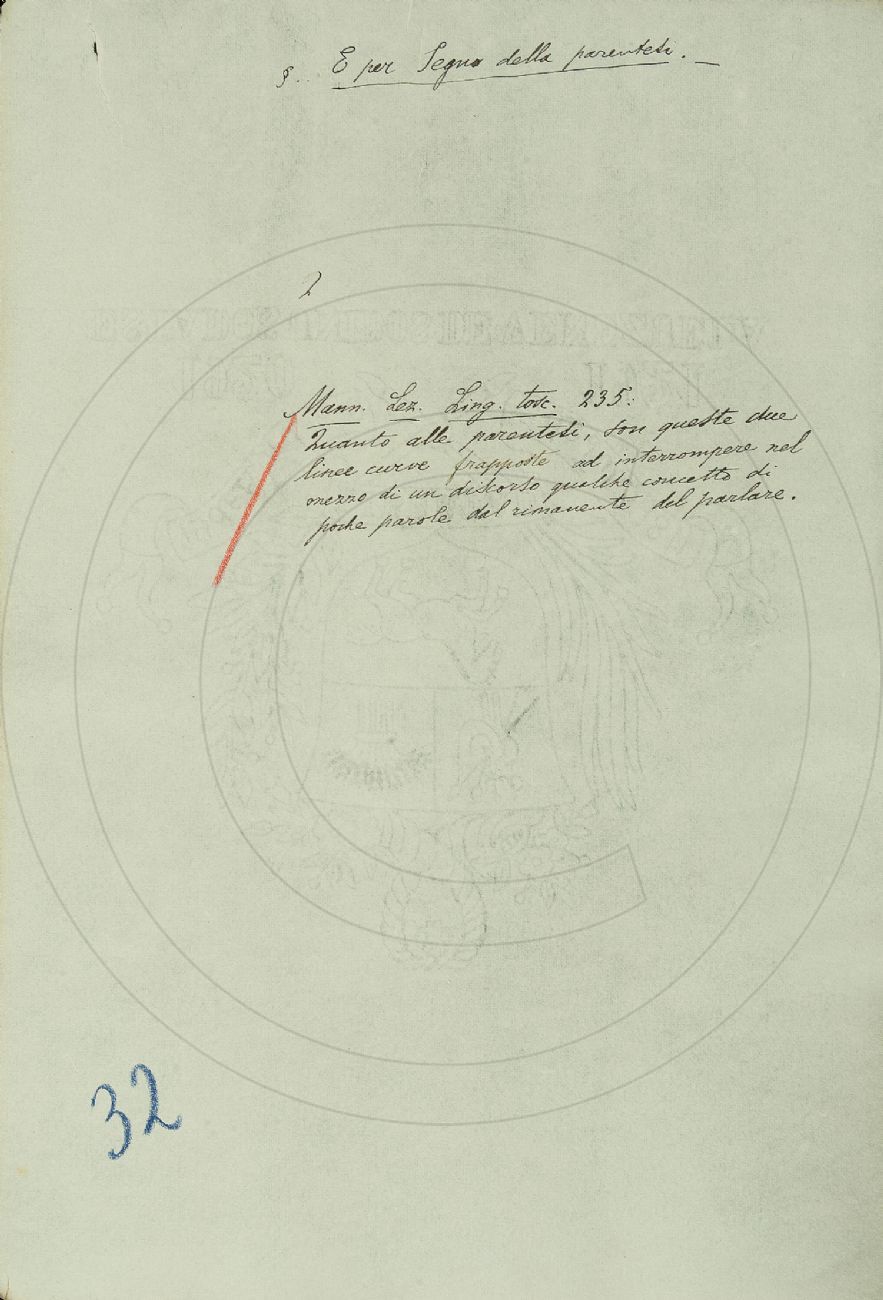 §. E per Segno della parentesi. —
2
Mann. Lez. Ling. tosc. 235:
Quanto alle parentesi, son queste due
linee curve frapposte ad interrompere nel
mezzo di un discorso qualche concetto di
poche parole dal rimanente del parlare.
32